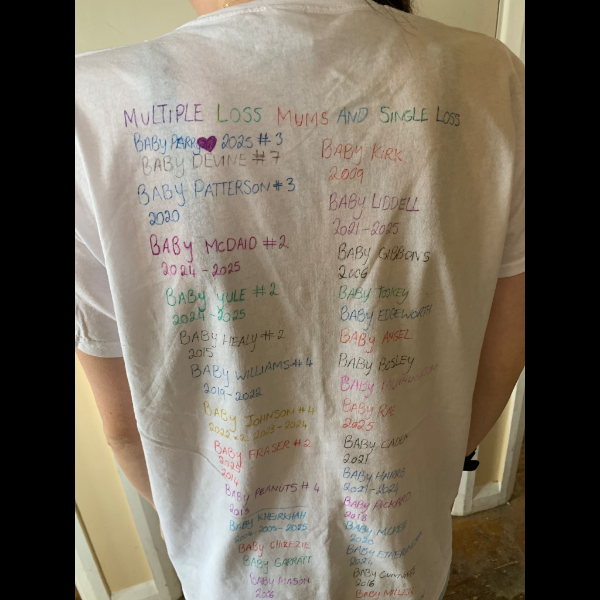 MULTIPLE LOSS MUMS AND SINGLE LOSS
BABY PARRY 2025 #3
BABY DEVINE #7
BABY PATTERSON #3
2020
BABY McDAID #2
2024-2025
BABY YULE #2
2024-2025
BABY HEALY #2
2015
BABY WILLIAMS #4
2019-2022
BABY JOHNSON #4
2023-2024
BABY FRASER #2
2023
2024
BABY PEANUTS #4
2013
BABY KHEIRKHAH
2025
BABY
BABY GARRATT
BABY MASON
BABY KIRK
2009
BABY LIDDELL
2021-2025
BABY GIBBONS
2006
BABY TOOKEY
BABY EDGEWORTH
BABY ANGEL
BABY POSLEY
BABY
BABY RAE
2025
BABY CADEN
2021
BABY HARRIS
BABY PICKARD
2018
BABY
2020
BABY
BABY
2016
BABY